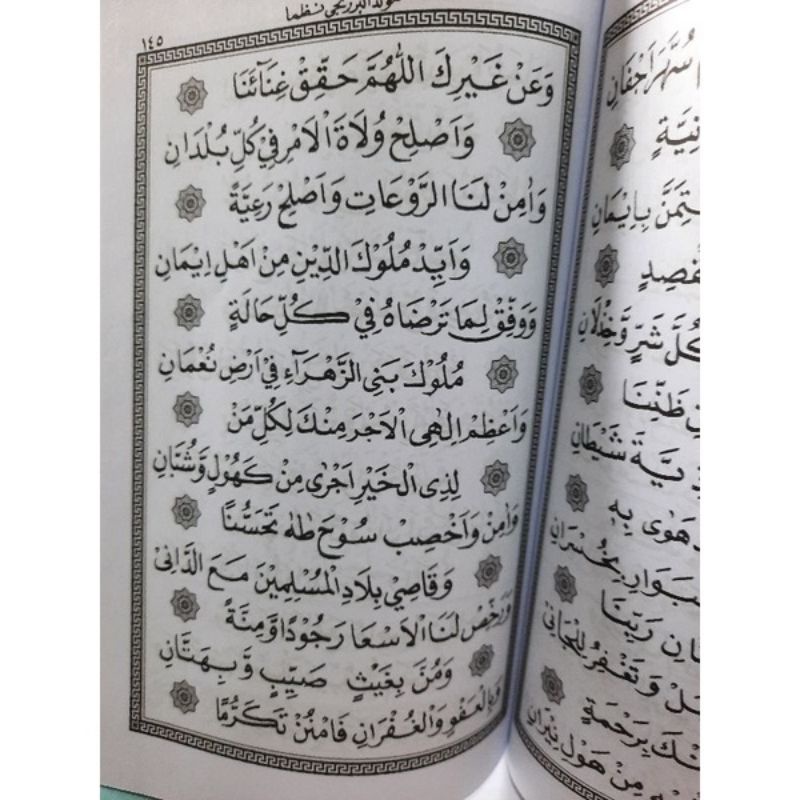 مولد البرزنجي نظما
١٤٥
وَعَنْ غَيْرِكَ اللّٰهُمَّ حَقِّقْ غِنَآئَنَا
وَاَصْلِحْ وُلَاةَ الْاَمْرِ فِيْ كُلِّ بُلْدَانِ
وَاٰمِنْ لَنَا الرَّوْعَاتِ وَاَصْلِحْ رَعِيَّةً
وَاَيِّدْ مُلُوْكَ الدِّيْنِ مِنْ اَهْلِ اِيْمَانِ
وَوَفِّقْ لِمَا تَرْضَاهُ فِيْ كُلِّ حَالَةٍ
مُلُوْكَ بَنِى الزَّهْرَآءِ فِيْ اَرْضِ نُعْمَانِ
وَاَعْظِمْ اِلٰهِى الْاَجْرَ مِنْكَ لِكُلِّ مَنْ
لِذِى الْخَيْرِ اَجْرٰى مِنْ كَهُوْلٍ وَّشُبَّانِ
وَاٰمِنْ وَاَخْصِبْ سُوْحَ طٰهٰ تَحَسُّنًا
وَقَاصِيْ بِلَادِ الْمُسْلِمِيْنَ مَعَ الدَّانِىْ
وَرَخِّصْ لَنَا الْاَسْعَارَ جُوْدًا وَّمِنَّةً
وَمُنَّ بِغَيْثٍ صَيِّبٍ وَّبِهَتَّانِ
وَالْغُفْرَانِ فَامْنُنْ تَكَرُّمًا
سُهَّرَ اَجْفَانِ
بِاِيْمَانِ
كُلَّ شَرٍّ وَّخِذْلَانِ
ظَنِّنَا
شَيْطَانِ
هَوٰى بِهٖ
بِخُسْرَانِ
رَبَّنَا
وَتَغْفِرُ لِلْجَانِىْ
بِرَحْمَةٍ
مِنْ هَوْلِ نِيْرَانِ